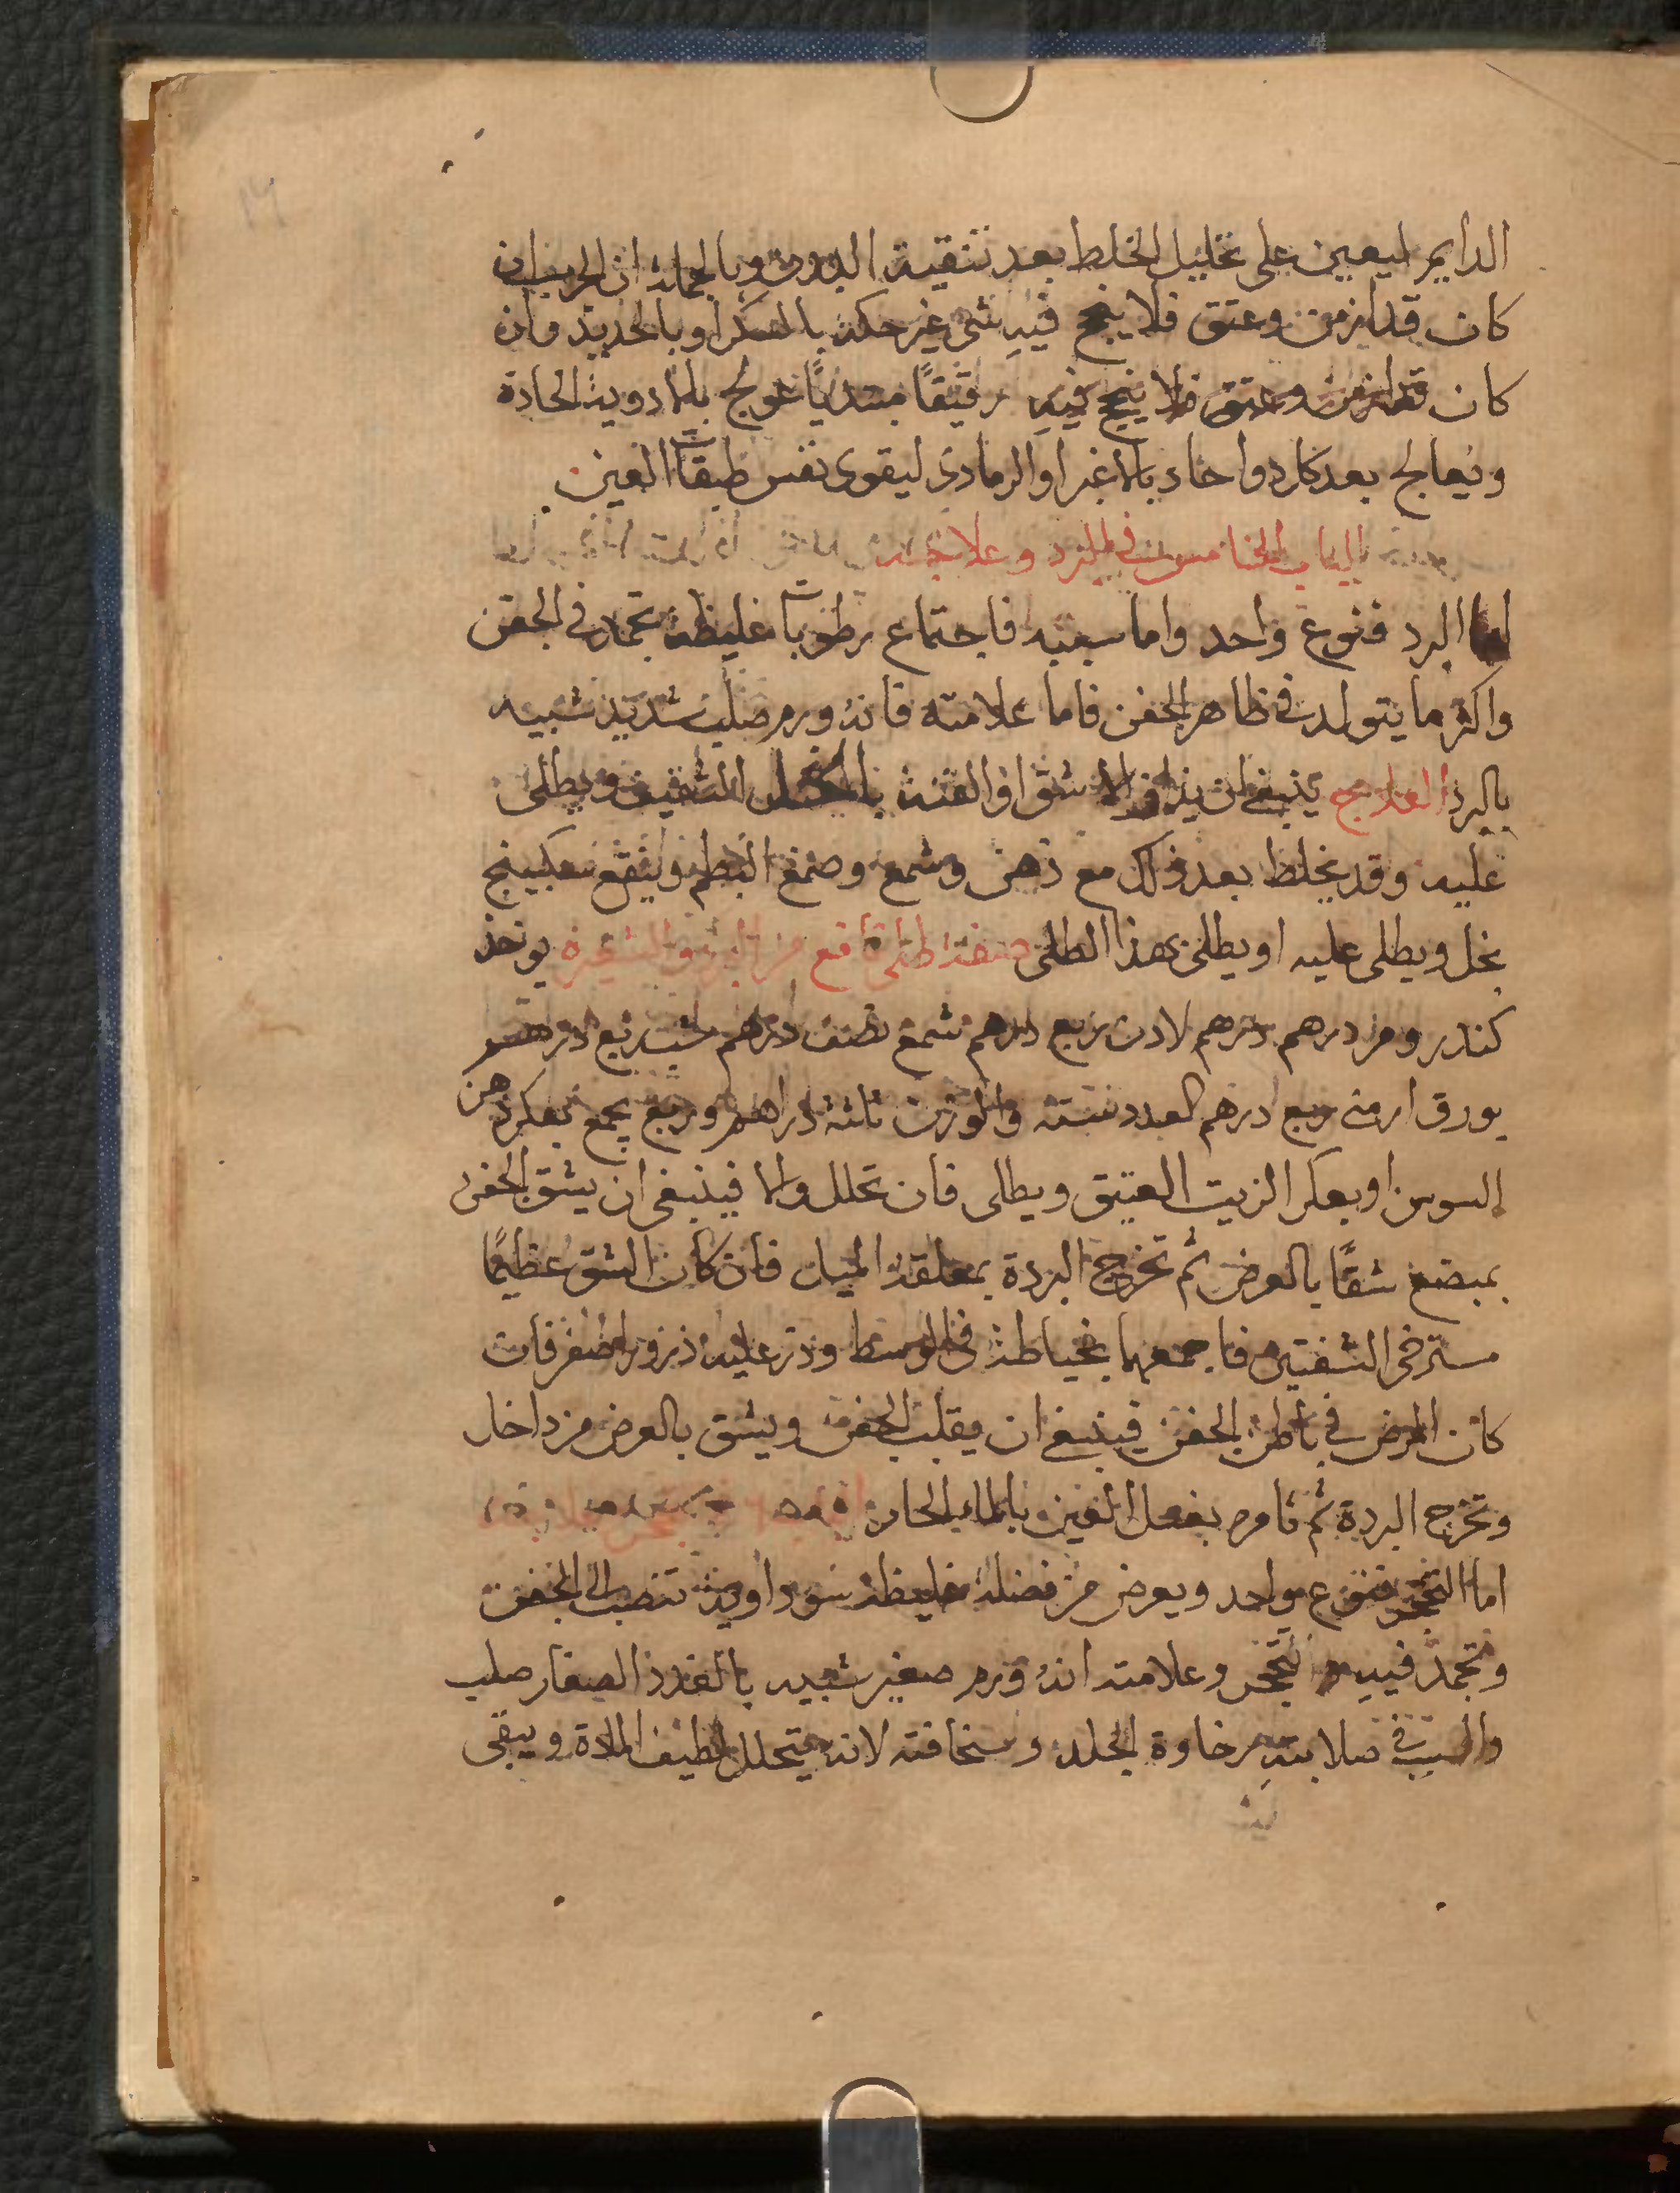 الدايم ليعين على تحليل الخلط بعد تنقية البدن وبالجملة ان الجرب ان
كان قد ازمن وعتق فلا ينجح فيه شي غير حكه بالسكر او بالحديد وان
كان قد ازمن وعتق فلا ينجح فيه رقيقًا مبتديًا عولج بالادوية الحادة
ويعالج بعد كل دوا حاد بالاغبر او الرمادي ليقوى نفس طبقات العين
الباب الخامس في البرد وعلاجه
اما البرد فنوع واحد واما سببه فاجتماع رطوبات غليظة تجمد في الجفن
واكثر ما يتولد في ظاهر الجفن فاما علامته فانه ورم صلب شديد شبيه
بالبرد العلاج ينبغي ان يذاف الاشق او القنة بالخل الثقيف ويطلى
عليه وقد يخلط بعد ذلك مع دهن وشمع وصمغ البطم وينقع سكبينج
بخل ويطلى عليه او يطلى بهذا الطلى صفة طلى نافع من البرد والشعيرة يوخذ
كندر ومر درهم درهم لادن ربع درهم شمع نصف درهم شب ربع درهم
بورق ارمني ربع درهم العدد ستة والوزن ثلثة دراهم وربع يجمع بعكر دهن
السوسن او بعكر الزيت العتيق ويطلى فان تحلل والا فينبغي ان يشق الجفن
بمبضع شقًا بالعرض ثم تخرج البردة بمعلقة الميل فان كان الشق عظيمًا
مسترخى الشفتين فاجمعهما بخياطة في الوسط وذر عليه ذرور اصفر فان
كان المرض في باطن الجفن فينبغي ان يقلب الجفن ويشق بالعرض من داخل
وتخرج البردة ثم تامره بغسل العين بالماء الحار
اما التحجر فنوع واحد ويعرض من فضلة غليظة سوداوية تنصب الى الجفن
وتجمد فيه وتتحجر وعلامته انه ورم صغير شبيه بالغدد الصغار صلب
والسبب في صلابته رخاوة الجلد وسخافته لانه يتحلل لطيف المادة ويبقى